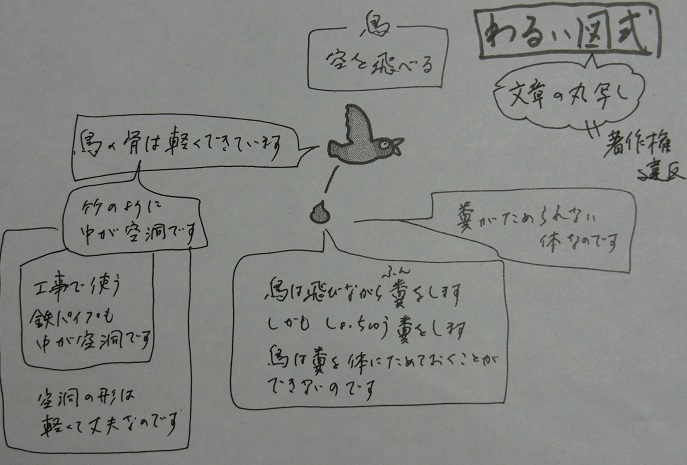 わるい図式
文章の丸写し
著作権
違反
鳥
空を飛べる
鳥の骨は軽くできています
竹のように
中が空洞です
工事で使う
鉄パイプも
中が空洞です
空洞の形は
軽くて丈夫なのです
糞がためられない
体なのです
ふん
鳥は飛びながら糞をします
しかもしょっちゅう糞をします
鳥は糞を体にためておくことが
できないのです